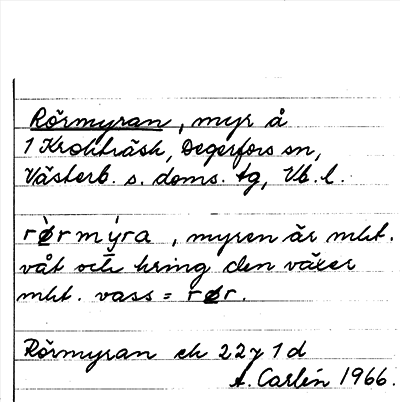 Rörmyran, myr å
1 Krokträsk, Degerfors sn,
Västerb. s. doms. tg, Vb. l.
rø̀r mýra, myren är mkt.
våt och kring den växer
mkt. vass = rør.
Rörmyran ek 22 y 1 d
A. Carlén 1966.